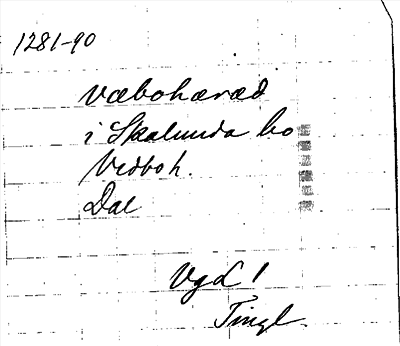 1281-90
Væbohæræd
i Skalunda bo
Vedboh.
Dal
VgL 1
Tingl.